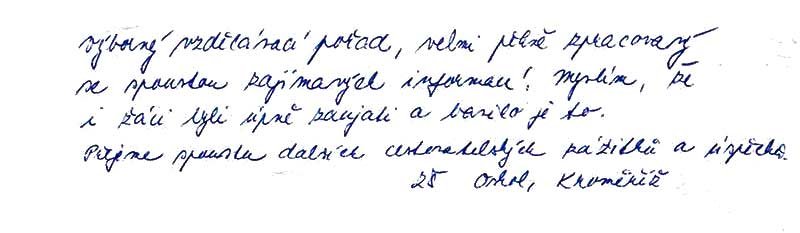 výborný vzdělávací pořad, velmi pěkně zpracovaný
se spoustou zajímavých informací. Myslím, že
i žáci byli úplně zaujati a bavilo je to.
Přejeme spoustu dalších cestovatelských zážitků a úspěchů.
ZŠ Oskol, Kroměříž